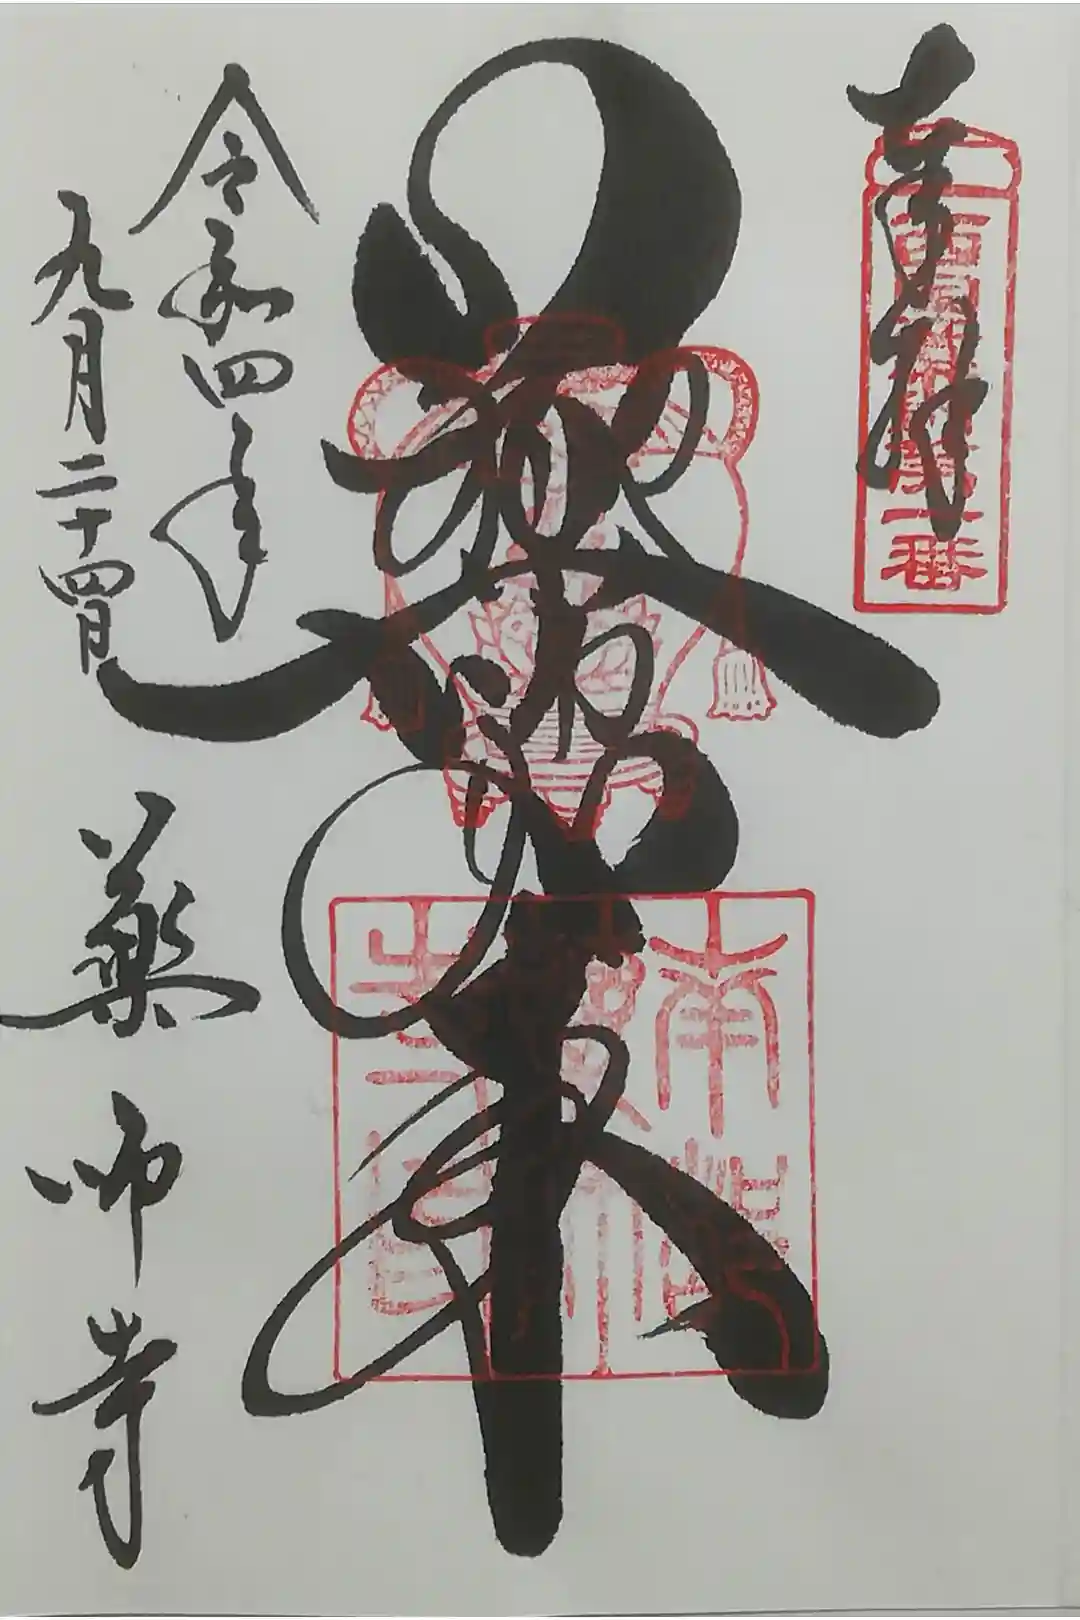 奉拝
西国薬師第一番
薬師如来
令和四年
九月二十四日
薬師寺